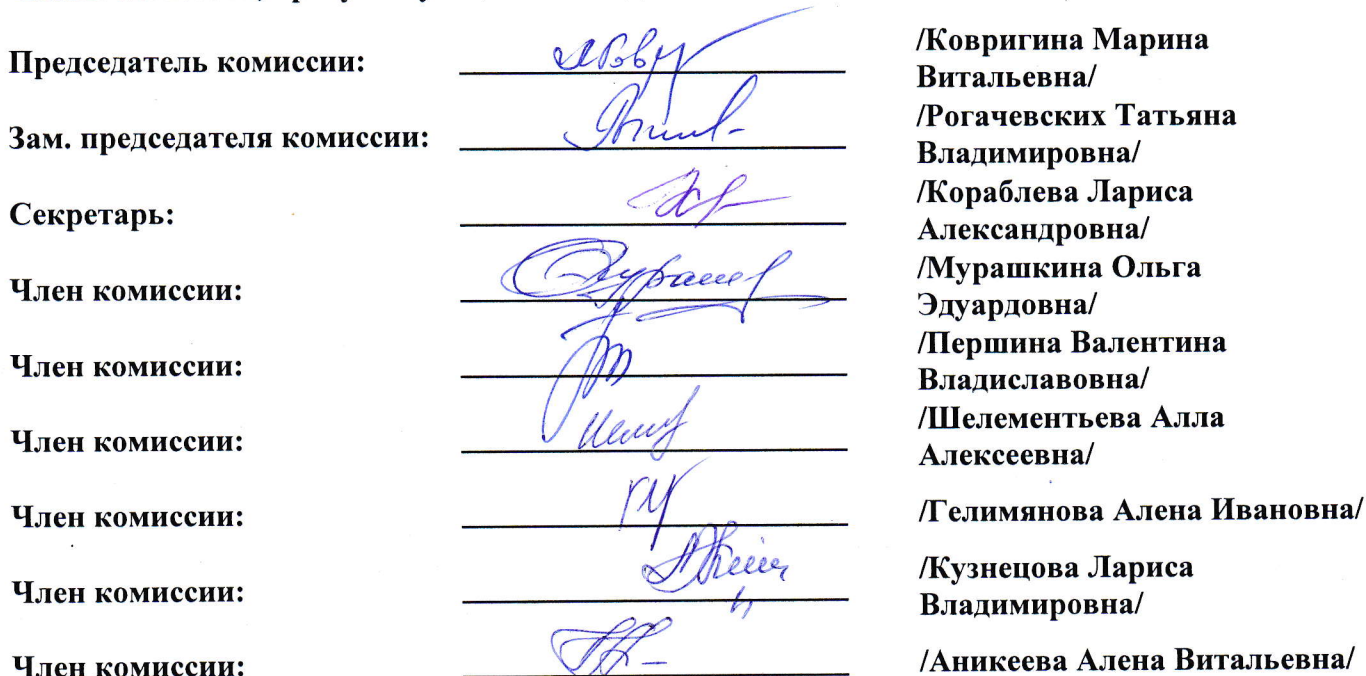 Председатель комиссии:
/Ковригина Марина
Витальевна/
Зам. председателя комиссии:
/Рогачевских Татьяна
Владимировна/
Секретарь:
/Кораблева Лариса
Александровна/
Член комиссии:
/Мурашкина Ольга
Эдуардовна/
Член комиссии:
/Першина Валентина
Владиславовна/
Член комиссии:
/Шелементьева Алла
Алексеевна/
Член комиссии:
/Гелимянова Алена Ивановна/
Член комиссии:
/Кузнецова Лариса
Владимировна/
Член комиссии:
/Аникеева Алена Витальевна/